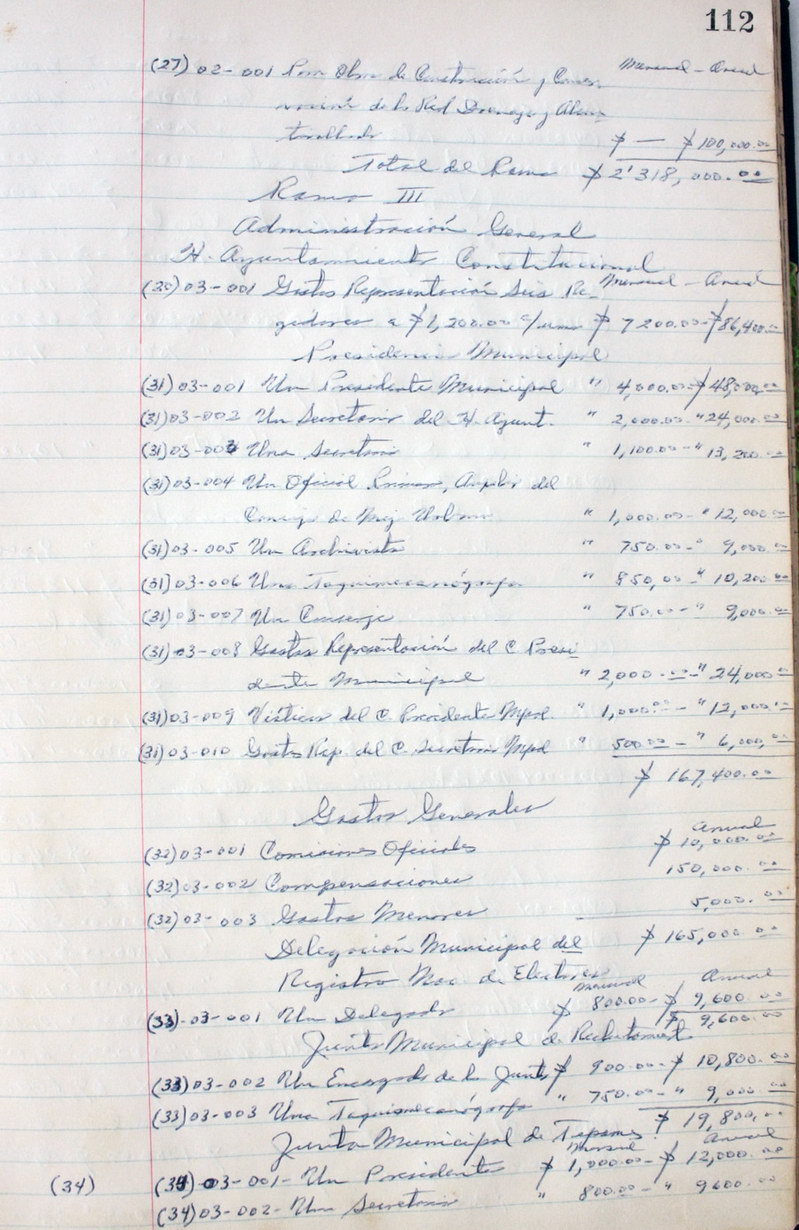 112
Mensual - Anual
(27) 02-001 Para Obra de Construcción y Conser-
vación de la Red Drenaje y Alcan-
tarillado $ — $ 100,000.00
Total del Ramo $ 2'318,000.00
Ramo III
Administración General
H. Ayuntamiento Constitucional
Mensual - Anual
(30) 03-001 Gastos Representación Seis Re-
gidores a $1,200.00 c/uno $ 7200.00 - $ 86,400.00
Presidencia Municipal
(31) 03-001 Un Presidente Municipal " 4,000.00 - $ 48,000.00
(31) 03-002 Un Secretario del H. Ayunt. " 2,000.00 - " 24,000.00
(31) 03-003 Una Secretaria " 1,100.00 - " 13,200.00
(31) 03-004 Un Oficial Primero, del
Urbano " 1,000.00 - " 12,000.00
(31) 03-005 Un Archivista " 750.00 - " 9,000.00
(31) 03-006 Una Taquimecanógrafa " 850.00 - " 10,200.00
(31) 03-007 Un Conserje " 750.00 - " 9,000.00
(31) 03-008 Gastos Representación del C. Presi
dente Municipal " 2,000.00 - " 24,000.00
(31) 03-009 Viáticos del C. Presidente Mpal. " 1,000.00 - " 12,000.00
(31) 03-010 Gastos Rep. del C. Secretario Mpal " 500.00 - " 6,000.00
$ 167,400.00
Gastos Generales
Anual
(32) 03-001 Comisiones Oficiales $ 10,000.00
(32) 03-002 Compensaciones 150,000.00
(32) 03-003 Gastos Menores 5,000.00
Delegación Municipal del $ 165,000.00
Registro Nac. de Electores
Mensual Anual
(33) 03-001 Un Delegado $ 800.00 - $ 9,600.00
$ 9,600.00
Junta Municipal de Reclutamiento
(33) 03-002 Un Encargado de la Junta $ 900.00 - $ 10,800.00
(33) 03-003 Una Taquimecanógrafa " 750.00 - " 9,000.00
$ 19,800.00
Junta Municipal de
Mensual Anual
(34) (34) 03-001- Un Presidente $ 1,000.00 - $ 12,000.00
(34) 03-002- Un Secretario " 800.00 - " 9600.00